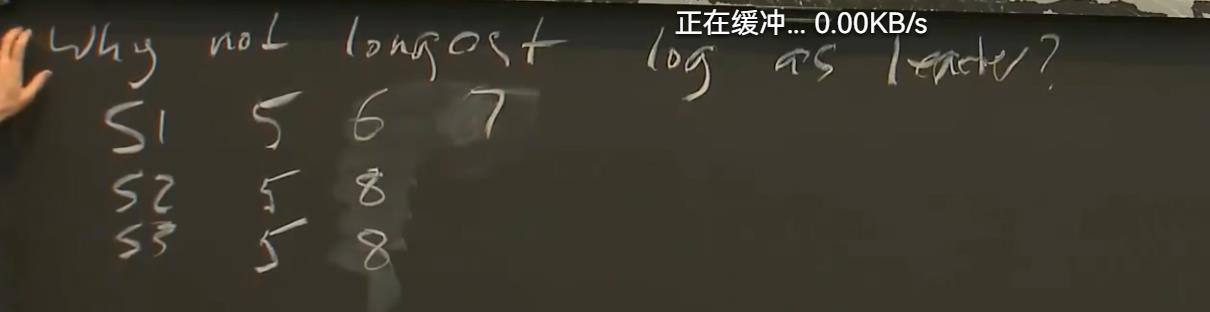 正在缓冲... 0.00KB/s
Why not longest log as leader?
S1 5 6 7
S2 5 8
S3 5 8